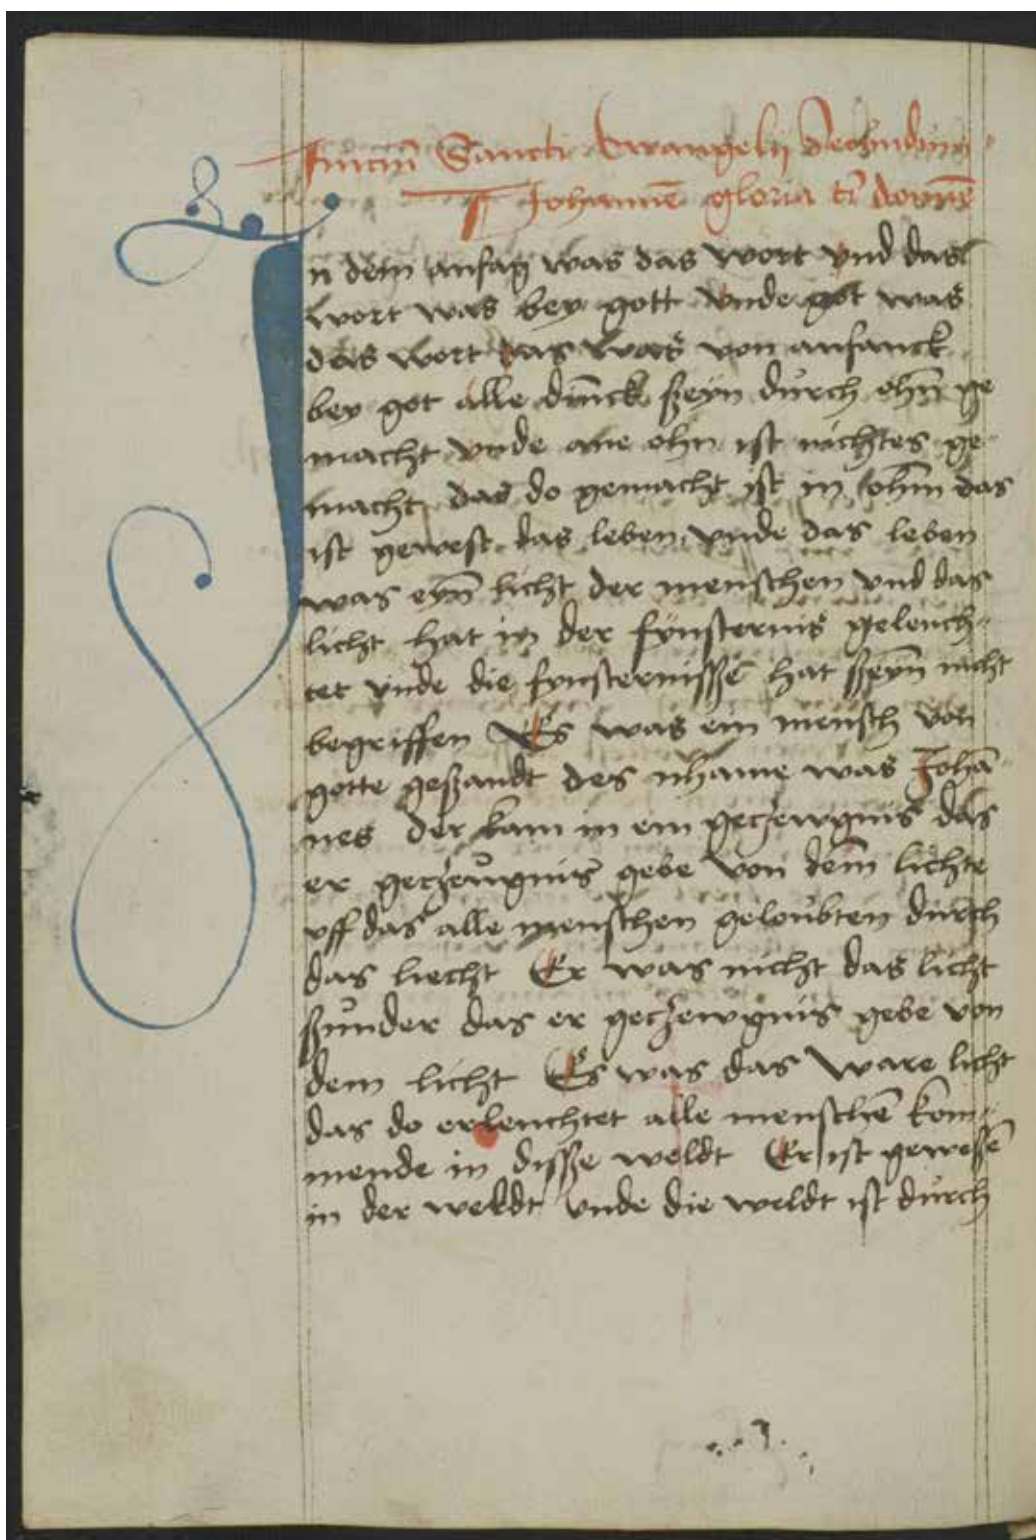 Iniciū Sancti Ewangelij Secundum
Johannē gloria ti domīe
In dem anfag was das wort vnd das
wort was bey gott vnde got was
das wort das was von anfanck
bey got alle dinck seyn durch ohn ge
macht vnde ane ohn ist nichtes ge
macht das do gemacht ist in ohm das
ist gewest das leben vnde das leben
was eyn licht der menschen vnd das
licht hat in der fynsternis geleuch
tet vnde die fynsternissze hat szeyn nicht
begriffen Es was ein mensch von
gotte gesandt des nhame was Johā
nes der kam in ein geczewgnis das
er geczeugnis gebe von dem lichte
vff das alle menschen geloubten durch
das liecht Er was nicht das licht
szunder das er geczewgnis gebe von
dem licht Es was das ware licht
das do erleuchtet alle menschē kom
mende in dissze weldt Er ist gewesē
in der weldt vnde die weldt ist durch